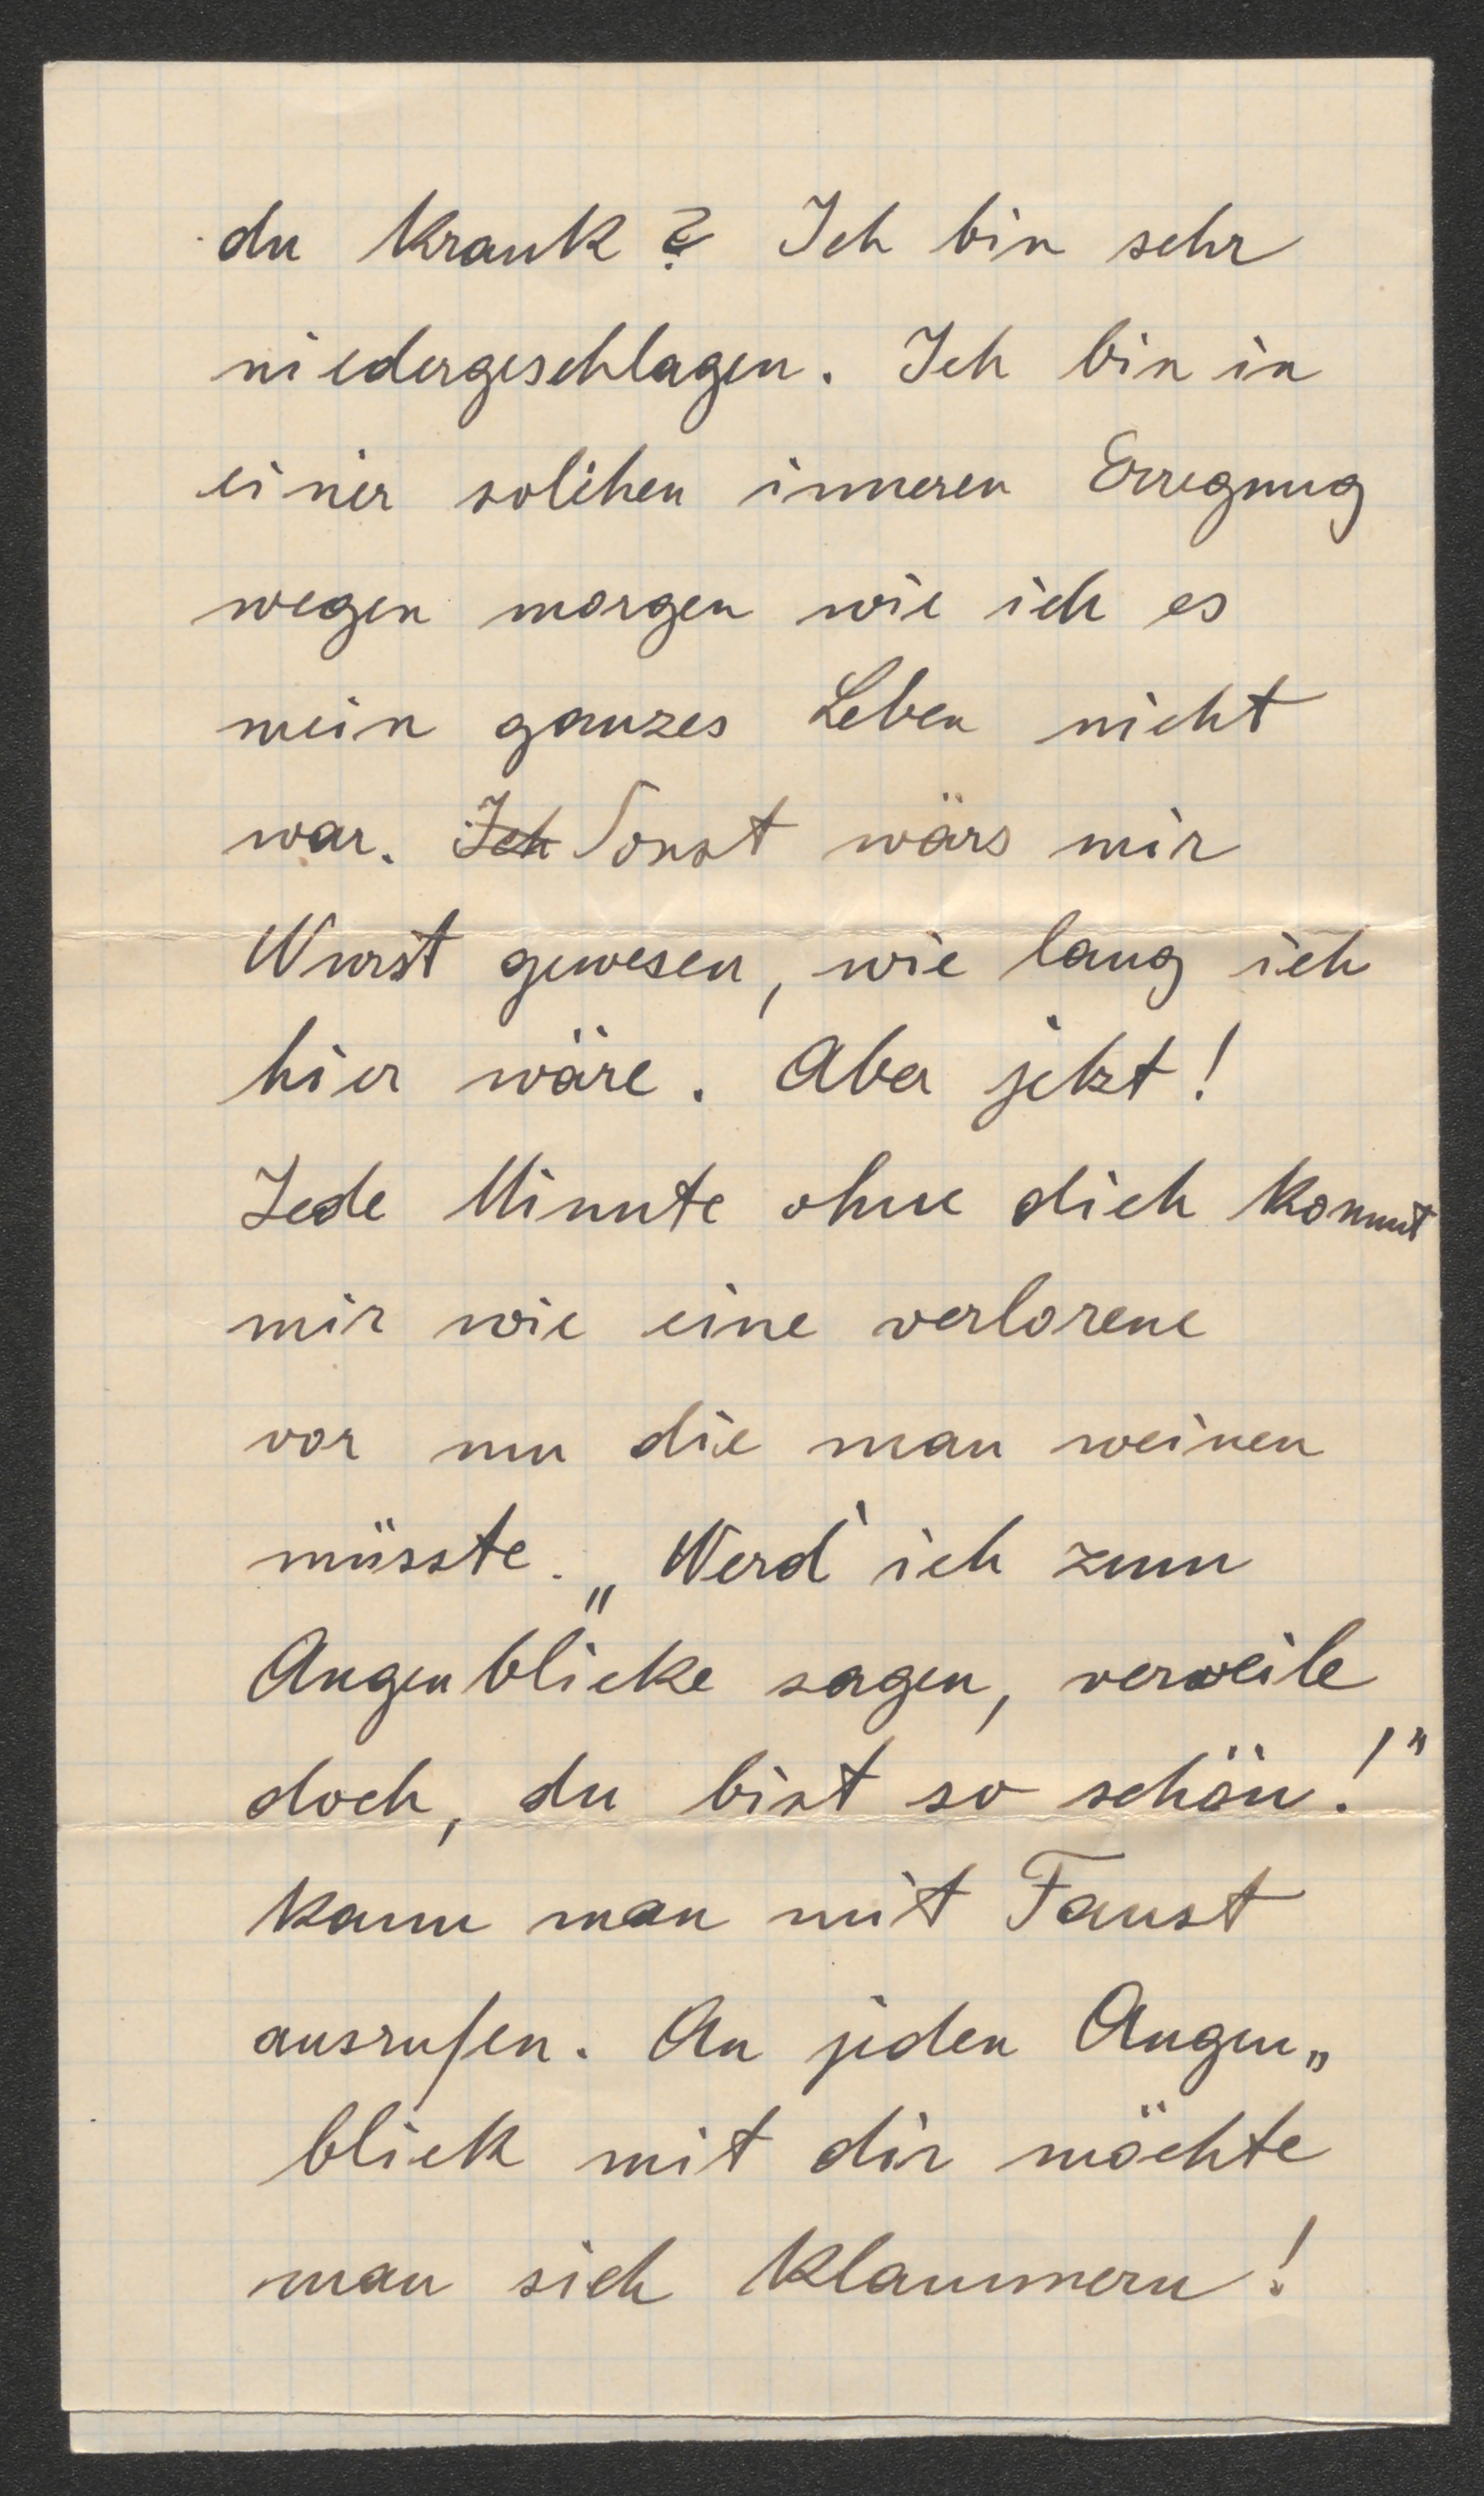 du krank? Ich bin sehr
niedergeschlagen. Ich bin in
einer solchen inneren Erregung
wegen morgen wie ich es
mein ganzes Leben nicht
war. Ich Sonst wärs mir
Wurst gewesen, wie lang ich
hier wäre. Aber jetzt!
Jede Minute ohne dich kommt
mir wie eine verlorene
vor um die man weinen
müsste. „Werd' ich zum
Augenblicke sagen, verweile
doch, du bist so schön!"
kann man mit Faust
ausrufen. An jeden Augen„
blick mit dir möchte
man sich klammern!